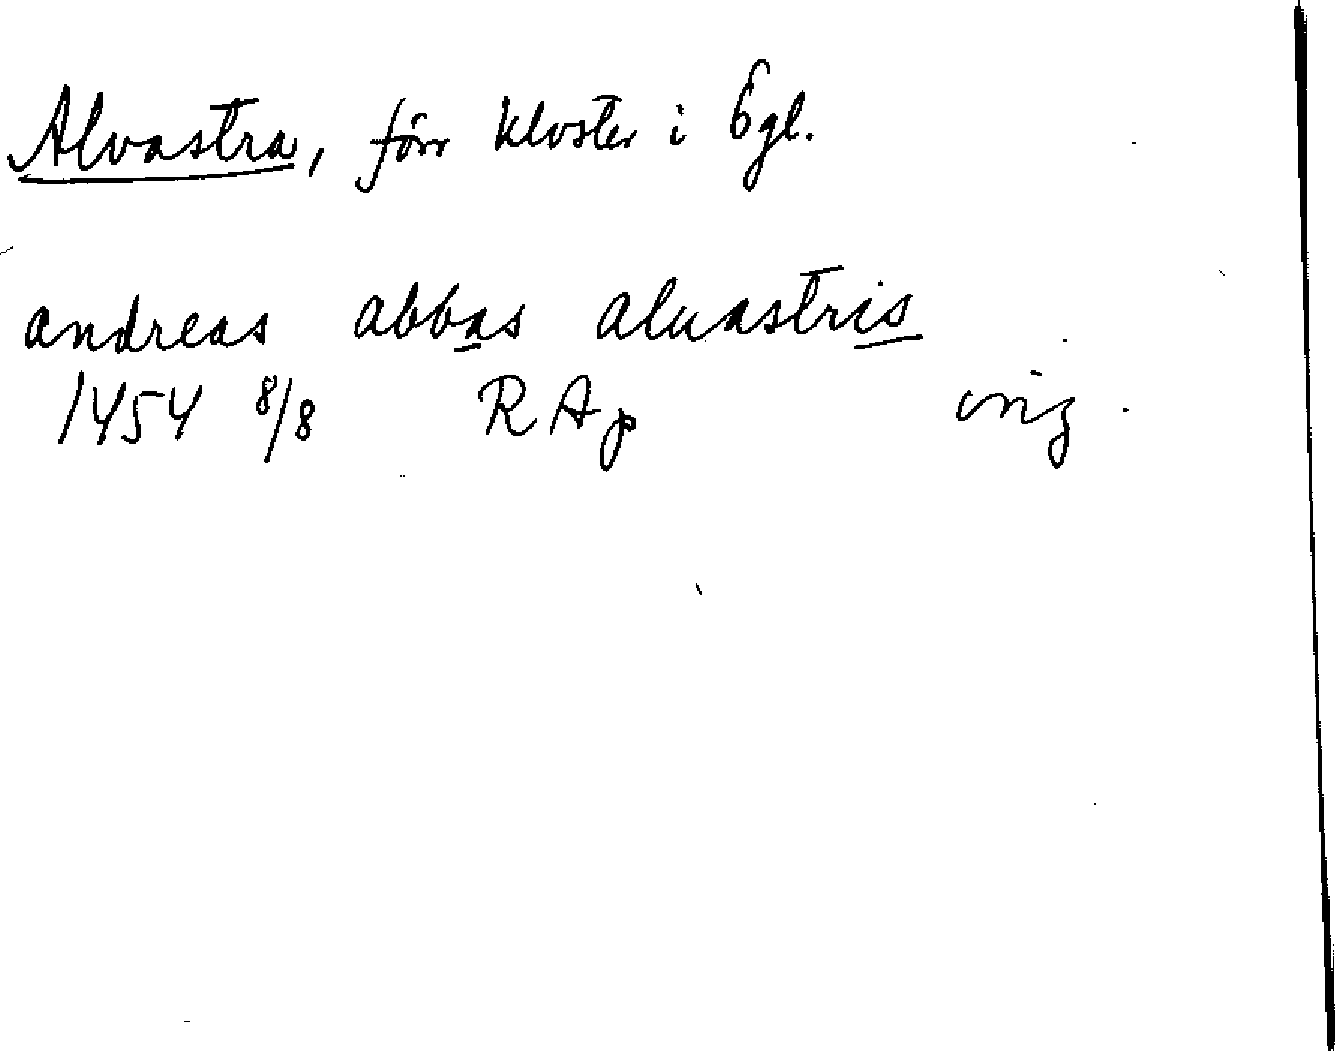 Alvastra, förr kloster i Ögl.
andreas abbas aluastris
1454 8/8 RAp orig.